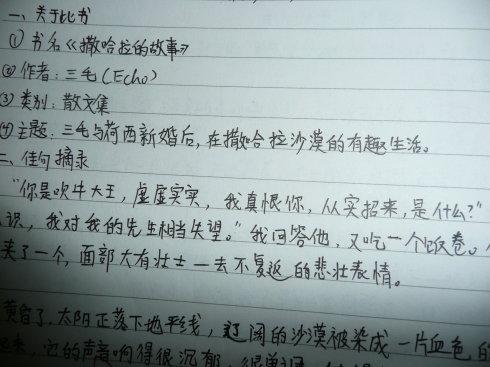 一、关于此书
①书名《撒哈拉的故事》
②作者:三毛(Echo)
③类别:散文集
④主题:三毛与荷西新婚后,在撒哈拉沙漠的有趣生活。
二、佳句摘录
"你是吹牛大王,虚虚实实,我真恨你,从实招来,是什么?"
识,我对我的先生相当失望。"我回答他,又吃一个饭卷。
来了一个,面部大有壮士一去不复返的悲壮表情。
黄昏了,太阳正落下地平线,辽阔的沙漠被染成一片血色的
起来,它的声音响得很沉郁,很单调